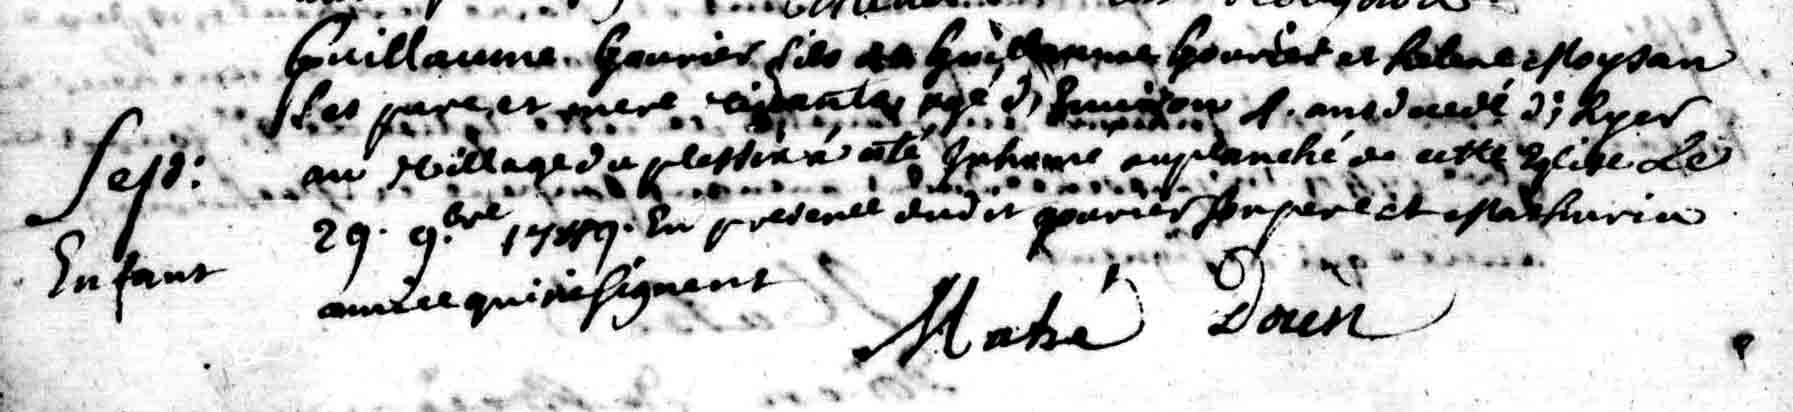 Guillaume Gourier fils de Guillaume Gourier et helene Moysan
Ses pere et mere vivants agé d'Environ 4. ans decedé d'hyer
au village du plessix a eté Inhumé au planché de cette Eglise Le
Sep:
29. 9.bre En presence dudit gourier Son pere et Mathurin
Enfant
qui ne Signent
Doüen